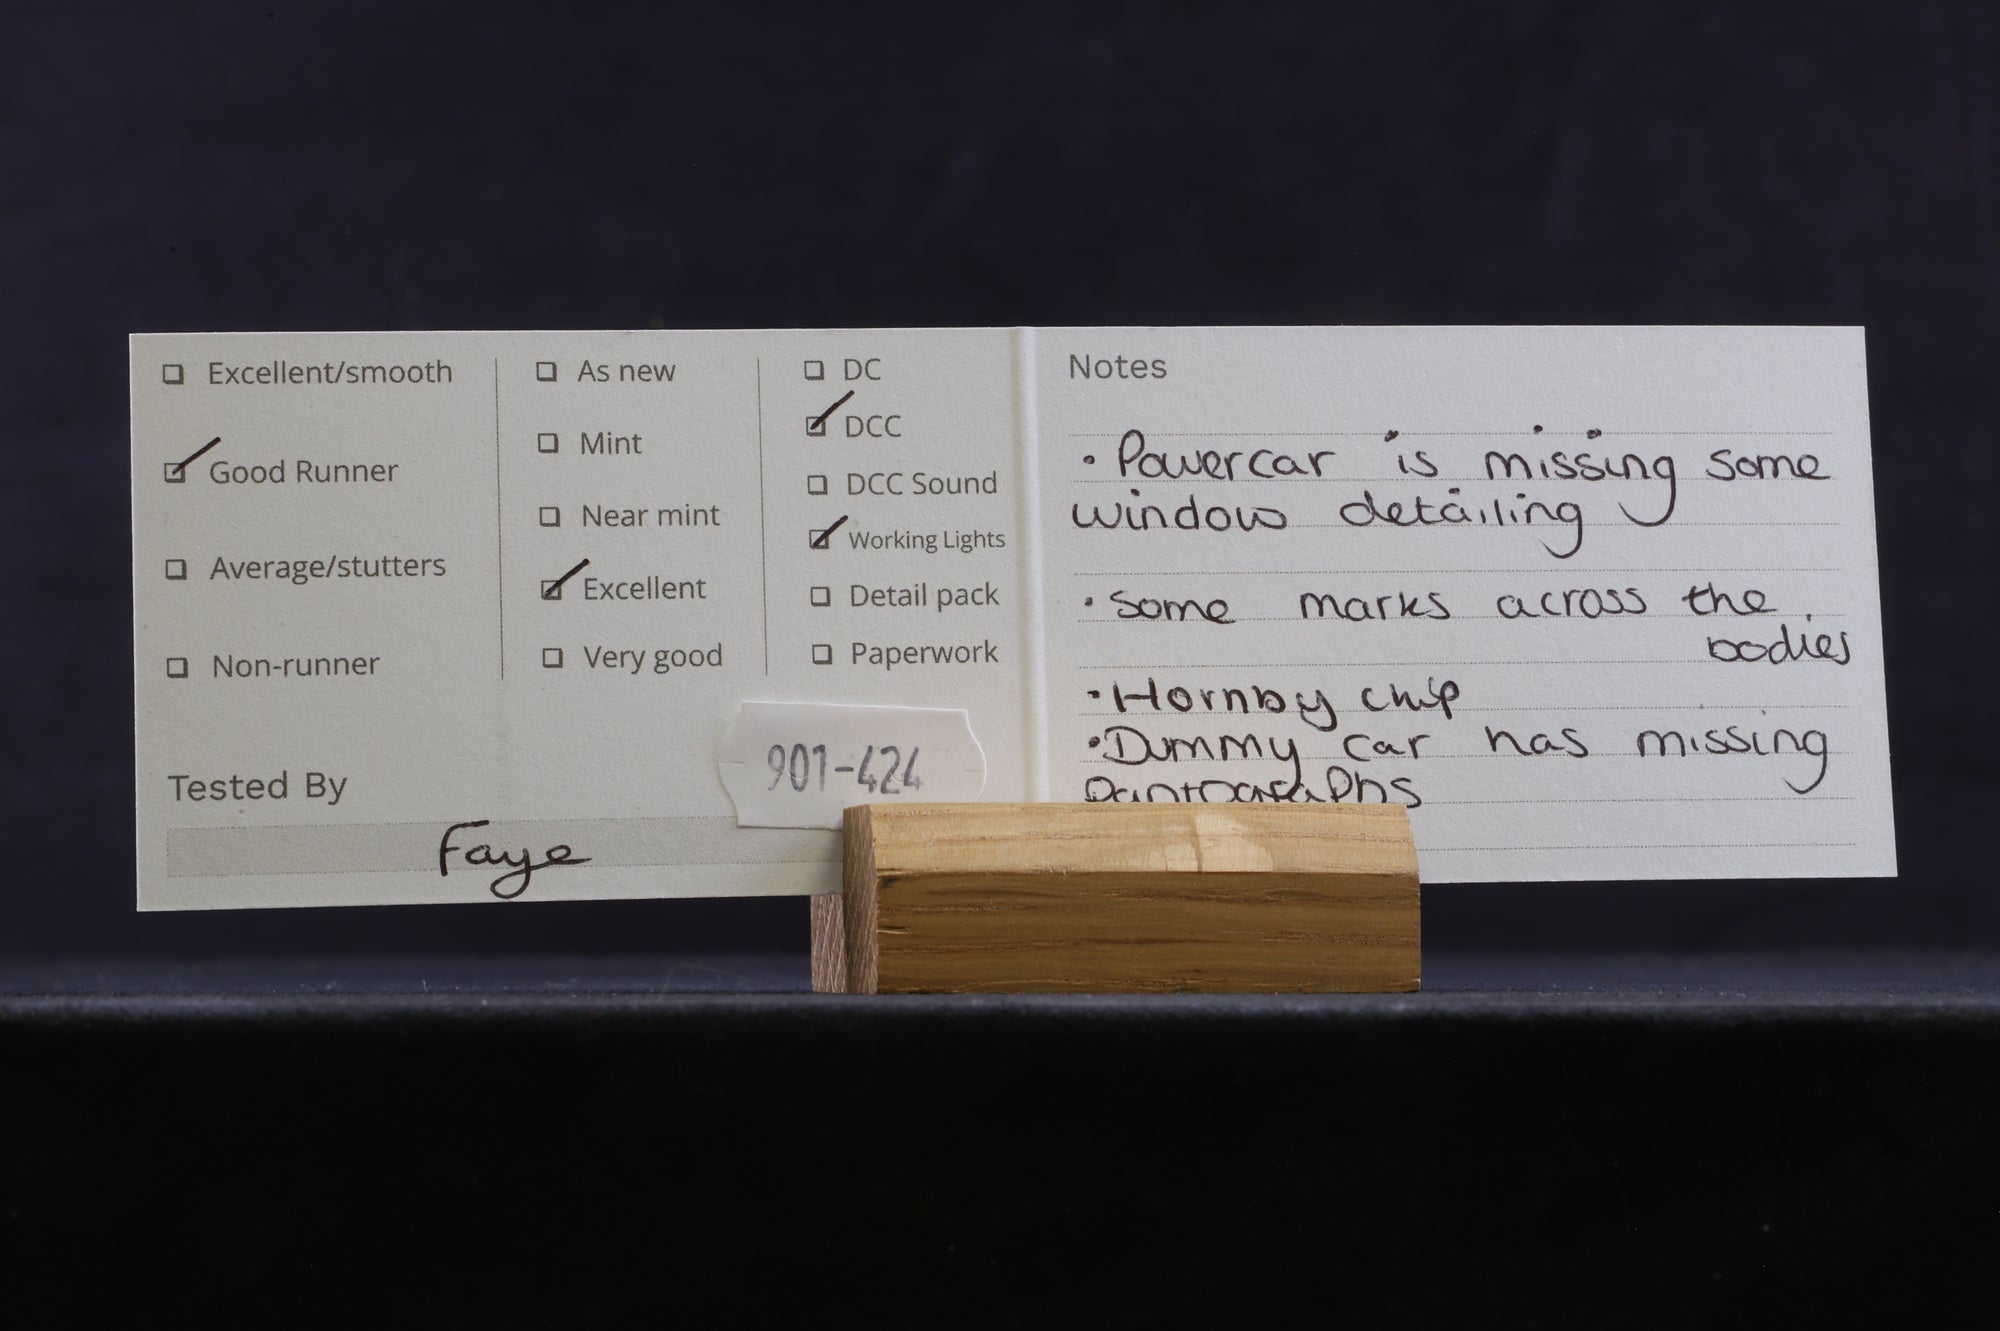 Excellent/smooth
Good Runner
Average/stutters
Non-runner
As new
Mint
Near mint
Excellent
Very good
DC
DCC
DCC Sound
Working Lights
Detail pack
Paperwork
Tested By
Faye
901-424
Notes
• Powercar is missing some
window detailing
• some marks across the
bodies
• Hornby chip
• Dummy car has missing
Pantographs